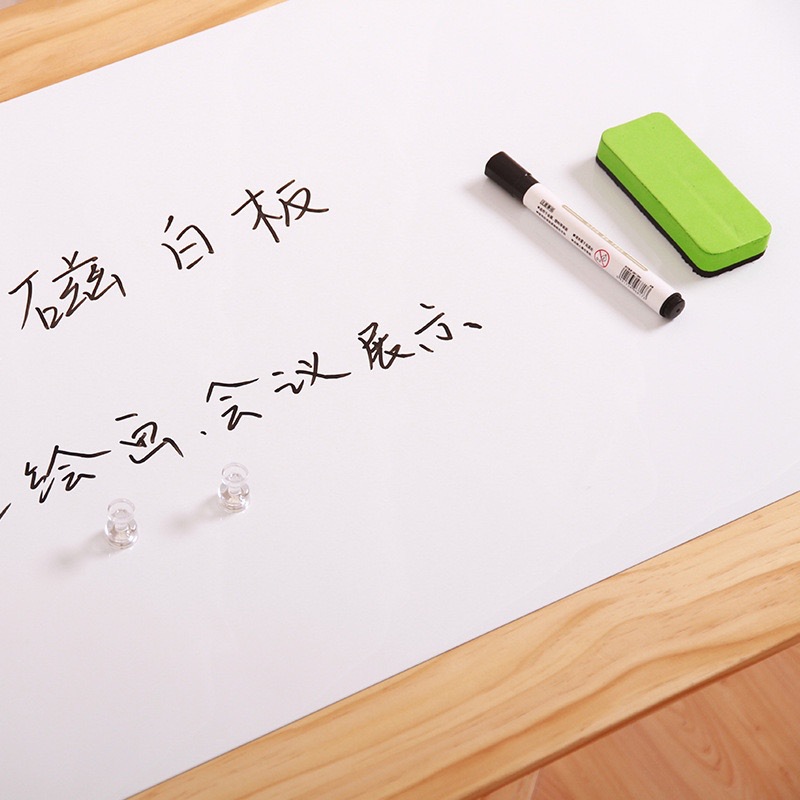 磁白板
绘画、会议展示